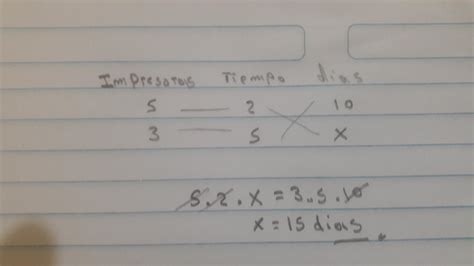 Impresoras Tiempo dias
5 — 2 10
3 5 x
5.2.x = 3.5.10
x = 15 dias.